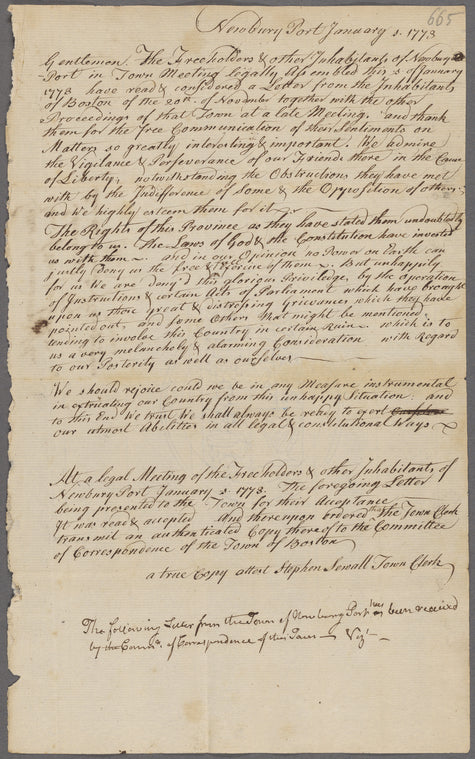 665
Newbury Port January 5. 1773
Gentlemen. The Freeholders & other Inhabitants of Newbury
-Port in Town Meeting legally Assembled this 5 of January
1773 have read & considered a Letter from the Inhabitants
of Boston of the 20th. of November together with the other
Proceedings of that Town at a late Meeting. and thank
them for the free Communication of their Sentiments on
Matters so greatly interesting & important. We admire
the Vigilance & Perseverance of our Friends there in the Cause
of Liberty, notwithstanding the Obstructions they have met
with by the Indifference of Some & the Opposition of others;
and We highly esteem them for it
The Rights of this Province as they have stated them undoubtedly
belong to us. The Laws of God & the Constitution have invested
us with them. and in our Opinion no Power on Earth can
justly deny us the free Exercise of them. But unhappily
for us We are deny'd this glorious Priviledge, by the operation
of Instructions & certain Acts of Parliament which have brought
upon us those great & distressing Grievances which they have
pointed out, and some Others that might be mentioned.
tending to involve this Country in certain Ruin which is to
us a very melancholy & alarming Consideration with Regard
to our Posterity as well as ourselves
We should rejoice could we be in any Measure instrumental
in extricating our Country from this unhappy Situation: and
to this End We trust We shall always be ready to exert
our utmost Abilities in all legal & constitutional Ways.
At a legal Meeting of the Freeholders & other Inhabitants of
Newbury Port January 5. 1773. The foregoing Letter
being presented to the Town for their Acceptance
It was read & accepted And thereupon ordered that the Town Clerk
transmit an authenticated Copy thereof to the Committee
of Correspondence of the Town of Boston
a true Copy attest Stephen Sewall Town Clerk
The following Letter from the Town of Newbury Port has been received
by the Comm. of Correspondence of this Town Viz.